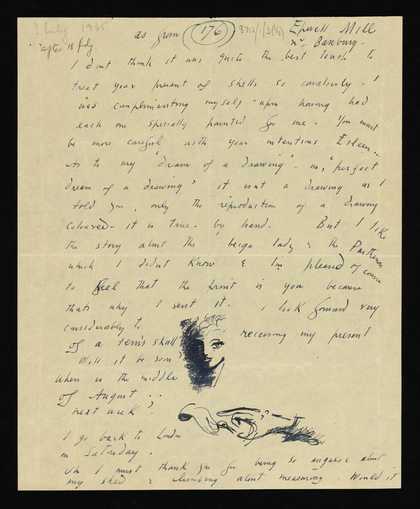 July 1935
as from 176 Epwell Mill
Nr. Banbury.
I dont think it was quite the best touch to
treat your present of shells so cavalierly. I
was complimenting myself upon having had
each one specially painted for me. You must
be more careful with your intentions Eileen.
As to my "dream of a drawing" - no, "perfect
dream of a drawing" it isnt a drawing as I
told you, only the reproduction of a drawing
coloured - it is true - by hand. But I like
the story about the beige lady & the Parthenon
which I didnt know & I'm pleased of course
to feel that the print is you because
thats why I sent it. I look forward very
considerably to receiving my present
of a tennis shall
Will it be soon
when in the middle
of August..
next week?
I go back to London
on Saturday.
Oh I must thank you for being so about
my shed & about measuring. Would it